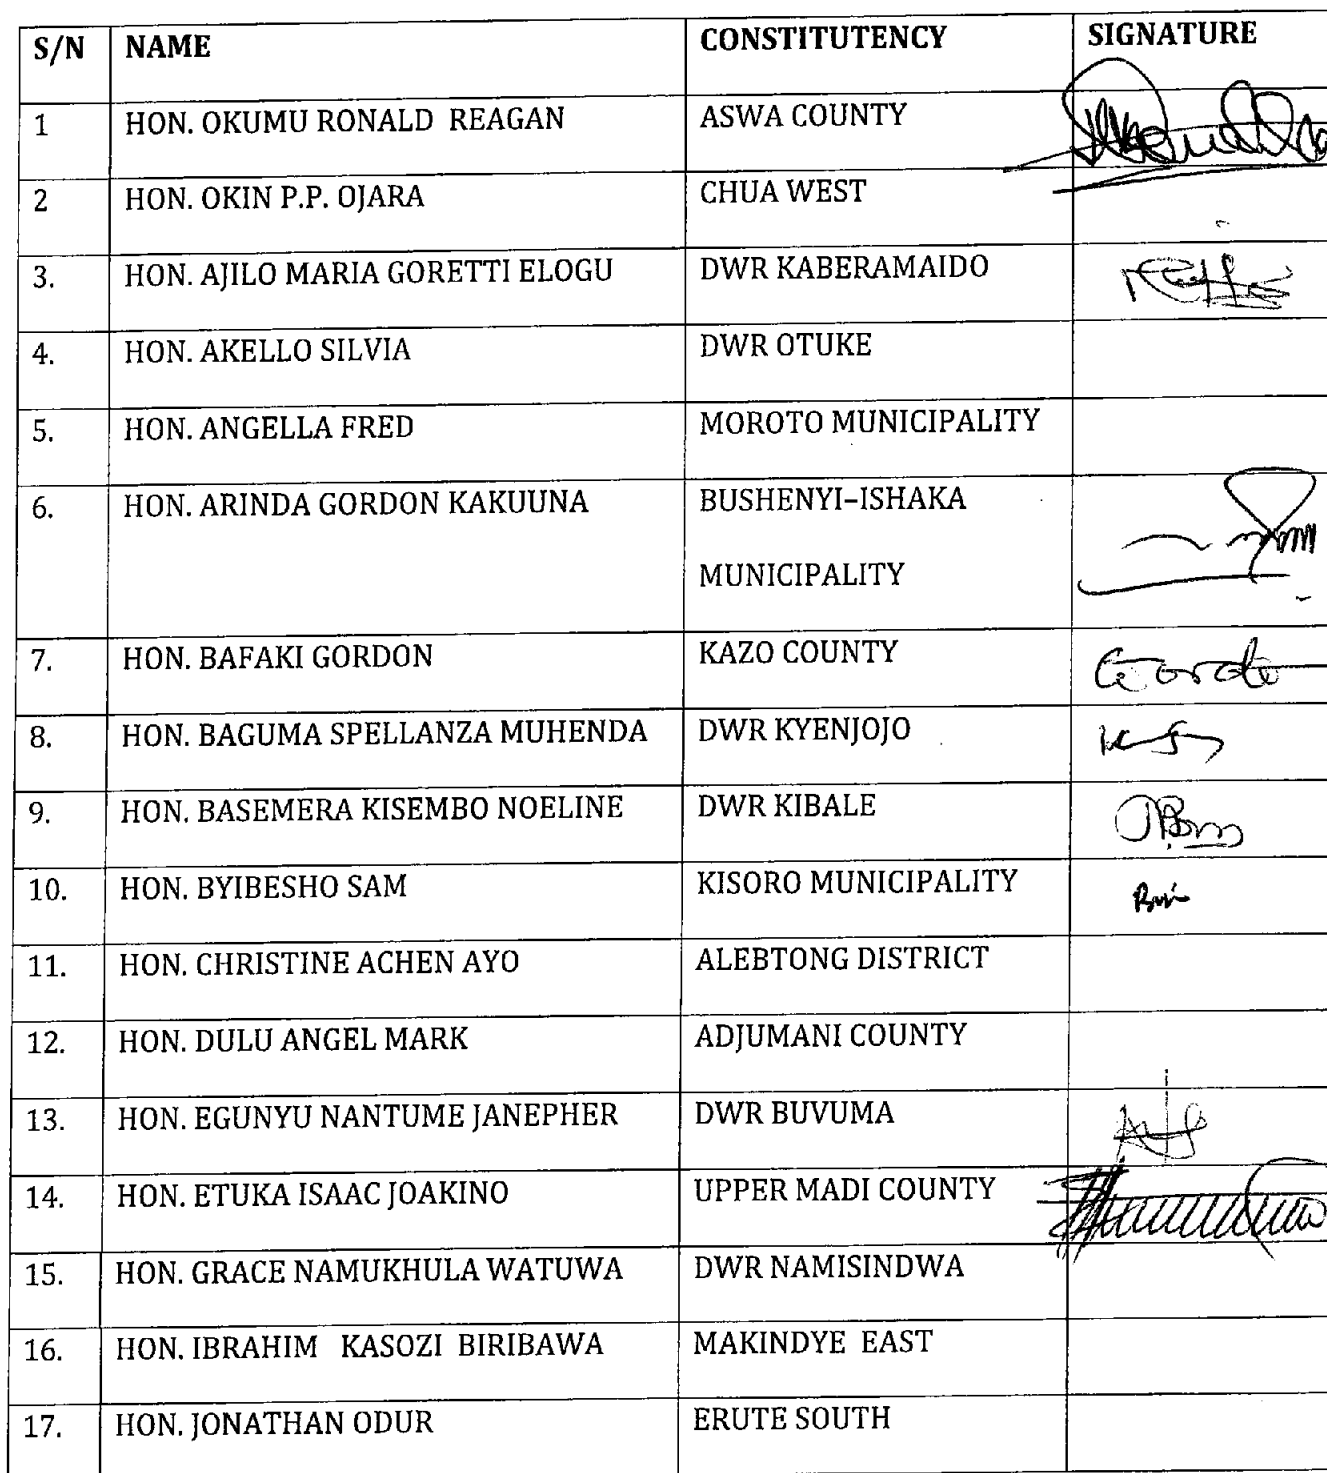 S/N NAME CONSTITUTENCY SIGNATURE
1 HON. OKUMU RONALD REAGAN ASWA COUNTY
2 HON. OKIN P.P. OJARA CHUA WEST
3. HON. AJILO MARIA GORETTI ELOGU DWR KABERAMAIDO
4. HON. AKELLO SILVIA DWR OTUKE
5. HON. ANGELLA FRED MOROTO MUNICIPALITY
6. HON. ARINDA GORDON KAKUUNA BUSHENYI-ISHAKA
MUNICIPALITY
7. HON. BAFAKI GORDON KAZO COUNTY
8. HON. BAGUMA SPELLANZA MUHENDA DWR KYENJOJO
9. HON. BASEMERA KISEMBO NOELINE DWR KIBALE
10. HON. BYIBESHO SAM KISORO MUNICIPALITY
11. HON. CHRISTINE ACHEN AYO ALEBTONG DISTRICT
12. HON. DULU ANGEL MARK ADJUMANI COUNTY
13. HON. EGUNYU NANTUME JANEPHER DWR BUVUMA
14. HON. ETUKA ISAAC JOAKINO UPPER MADI COUNTY
15. HON. GRACE NAMUKHULA WATUWA DWR NAMISINDWA
16. HON. IBRAHIM KASOZI BIRIBAWA MAKINDYE EAST
17. HON. JONATHAN ODUR ERUTE SOUTH